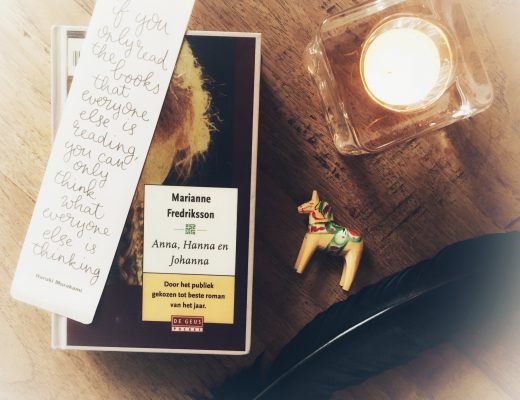 if you
only read
the books
that
everyone
else is
reading,
you can
only
think
what
everyone
else is
thinking
Haruki Murakami
Marianne
Fredriksson
Anna, Hanna en
Johanna
Door het publiek
gekozen tot beste roman
van het jaar.
DE GEUS
POCKET